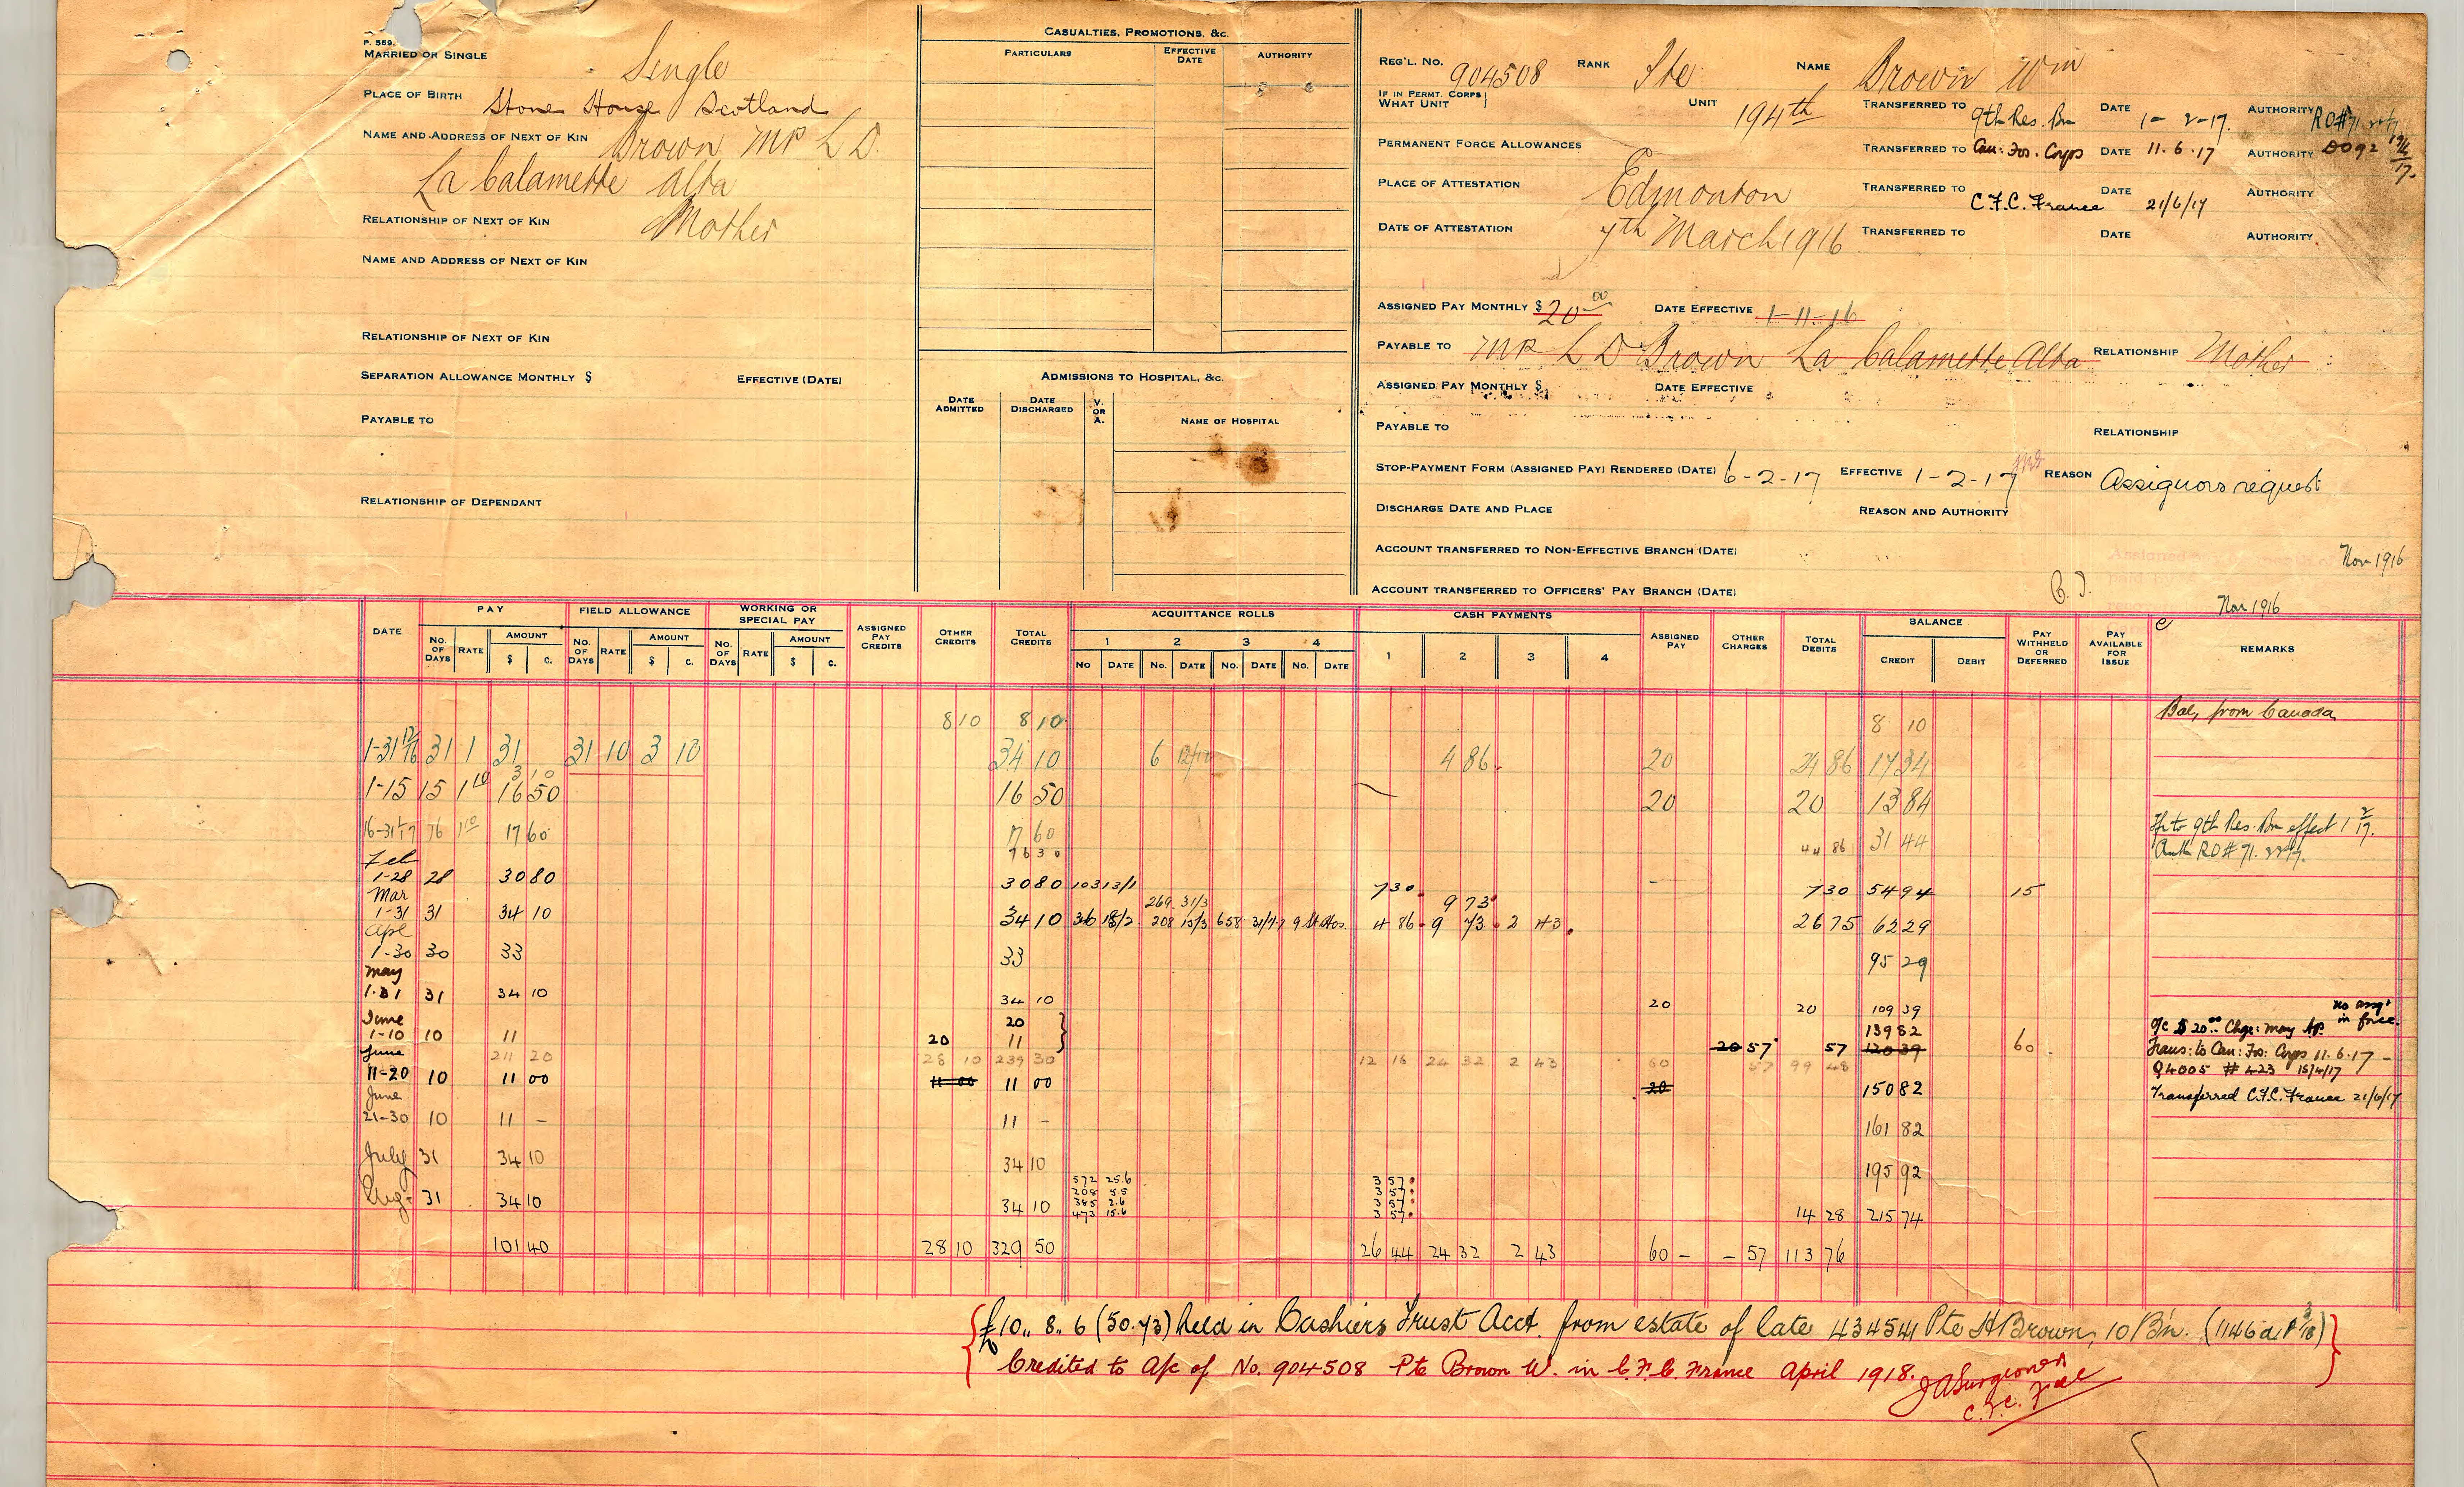 P. 559.
MARRIED OR SINGLE Single
PLACE OF BIRTH Stone House Scotland
NAME AND ADDRESS OF NEXT OF KIN Brown Mrs L D.
La Calamette Alta
RELATIONSHIP OF NEXT OF KIN Mother
NAME AND ADDRESS OF NEXT OF KIN
RELATIONSHIP OF NEXT OF KIN
SEPARATION ALLOWANCE MONTHLY $ EFFECTIVE (DATE)
PAYABLE TO
RELATIONSHIP OF DEPENDANT
CASUALTIES, PROMOTIONS, &c.
PARTICULARS EFFECTIVE DATE AUTHORITY
ADMISSIONS TO HOSPITAL, &c.
DATE ADMITTED DATE DISCHARGED V. OR A. NAME OF HOSPITAL
REG'L. No. 904508 RANK Pte NAME Brown Wm
IF IN PERMT. CORPS WHAT UNIT UNIT 194th TRANSFERRED TO 9th Res. Bn DATE 1-2-17. AUTHORITY RO#71
PERMANENT FORCE ALLOWANCES TRANSFERRED TO Can: For. Corps DATE 11.6.17 AUTHORITY DO92
PLACE OF ATTESTATION Edmonton TRANSFERRED TO C.F.C. France DATE 21/6/17 AUTHORITY
DATE OF ATTESTATION 7th March 1916 TRANSFERRED TO DATE AUTHORITY
ASSIGNED PAY MONTHLY $ 20 00 DATE EFFECTIVE 1-11-16
PAYABLE TO Mrs L D Brown La Calamette Alta RELATIONSHIP Mother
ASSIGNED PAY MONTHLY $ DATE EFFECTIVE
PAYABLE TO RELATIONSHIP
STOP-PAYMENT FORM (ASSIGNED PAY) RENDERED (DATE) 6-2-17 EFFECTIVE 1-2-17 REASON Assignors request
DISCHARGE DATE AND PLACE REASON AND AUTHORITY
ACCOUNT TRANSFERRED TO NON-EFFECTIVE BRANCH (DATE) Nov 1916
ACCOUNT TRANSFERRED TO OFFICERS' PAY BRANCH (DATE)
Nov 1916
DATE PAY FIELD ALLOWANCE WORKING OR SPECIAL PAY ASSIGNED PAY CREDITS OTHER CREDITS TOTAL CREDITS ACQUITTANCE ROLLS CASH PAYMENTS ASSIGNED PAY OTHER CHARGES TOTAL DEBITS BALANCE PAY WITHHELD OR DEFERRED PAY AVAILABLE FOR ISSUE REMARKS
No. OF DAYS RATE AMOUNT $ C. No. OF DAYS RATE AMOUNT $ C. No. OF DAYS RATE AMOUNT $ C. 1 2 3 4 1 2 3 4 CREDIT DEBIT
No DATE No. DATE No. DATE No. DATE
8 10 8 10 8 10 Bal, from Canada
1-31 12/16 31 1 31 31 10 3 10 34 10 6 4 86 20 24 86 17 34
3 10
1-15 15 1 10 16 50 16 50 20 20 13 84
16-31 1/17 16 1 10 17 60 17 60 31 44 Tfr to 9th Res. Bn effect 1 2/17.
76 30 44 86 Auth RO# 71.
Feb
1-28 28 30 80 30 80 103 13/1 7 30 7 30 54 94 15
Mar 269 31/3 9 73
1-31 31 34 10 34 10 36 18/2 208 15/3 658 4 86 9 73 2 43 26 75 62 29
Apl
1-30 30 33 33 95 29
May
1-31 31 34 10 34 10 20 20 109 39
June 20 no asg' in force.
1-10 10 11 20 11 139 82 o/c $20.00 Chge: May AP.
June 211 20 28 10 239 30 12 16 24 32 2 43 60 20 57 57 99 48 129 39 60 Trans: to Can: For: Corps 11.6.17 -
11-20 10 11 00 11 00 11 00 20 150 82 Q4005 # 423 15/4/17
June Transferred C.F.C. France 21/6/17
21-30 10 11 - 11 - 161 82
July 31 34 10 34 10 195 92
572 25.6 3 57
208 5.5 3 57
Aug 31 34 10 34 10 385 2.6 3 57
473 15.6 3 57 14 28 215 74
101 40 28 10 329 50 26 44 24 32 2 43 60 - - 57 113 76
£10,, 8,, 6 (50.73) held in Cashiers Trust Acct. from estate of late 434541 Pte H Brown, 10 Bn.
Credited to A/c of No. 904508 Pte Brown W. in C.F.C. France April 1918.